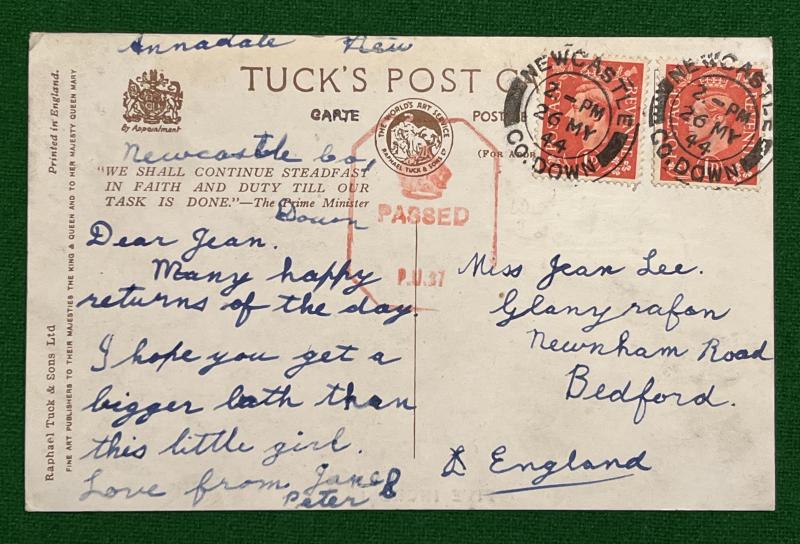 Annadale New
TUCK'S POST C
CARTE
POSTALE
(FOR ADDR
By Appointment
THE WORLD'S ART SERVICE
RAPHAEL TUCK & SONS LTD
Newcastle Co,
Down
"WE SHALL CONTINUE STEADFAST
IN FAITH AND DUTY TILL OUR
TASK IS DONE."—The Prime Minister
PASSED
P.U.37
Dear Jean.
Many happy
returns of the day.
I hope you get a
bigger bath than
this little girl.
Love from Jane &
Peter
NEWCASTLE
2 - PM
26 MY
44
CO. DOWN
NEWCASTLE
2 - PM
26 MY
44
CO. DOWN
POSTAGE REVENUE
Miss Jean Lee.
Glanyrafon
Newnham Road
Bedford.
England
Printed in England.
Raphael Tuck & Sons Ltd
FINE ART PUBLISHERS TO THEIR MAJESTIES THE KING & QUEEN AND TO HER MAJESTY QUEEN MARY